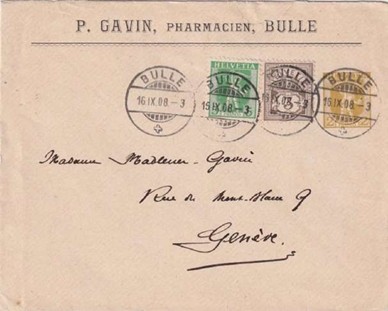 P. GAVIN, PHARMACIEN, BULLE
BULLE
16 IX.08.-3
HELVETIA
BULLE
15 IX.08.-3
BULLE
BULLE
16 IX.08.-3
Madame Madlener-Gavin
Rue du Mont-Blanc 9
Genève.